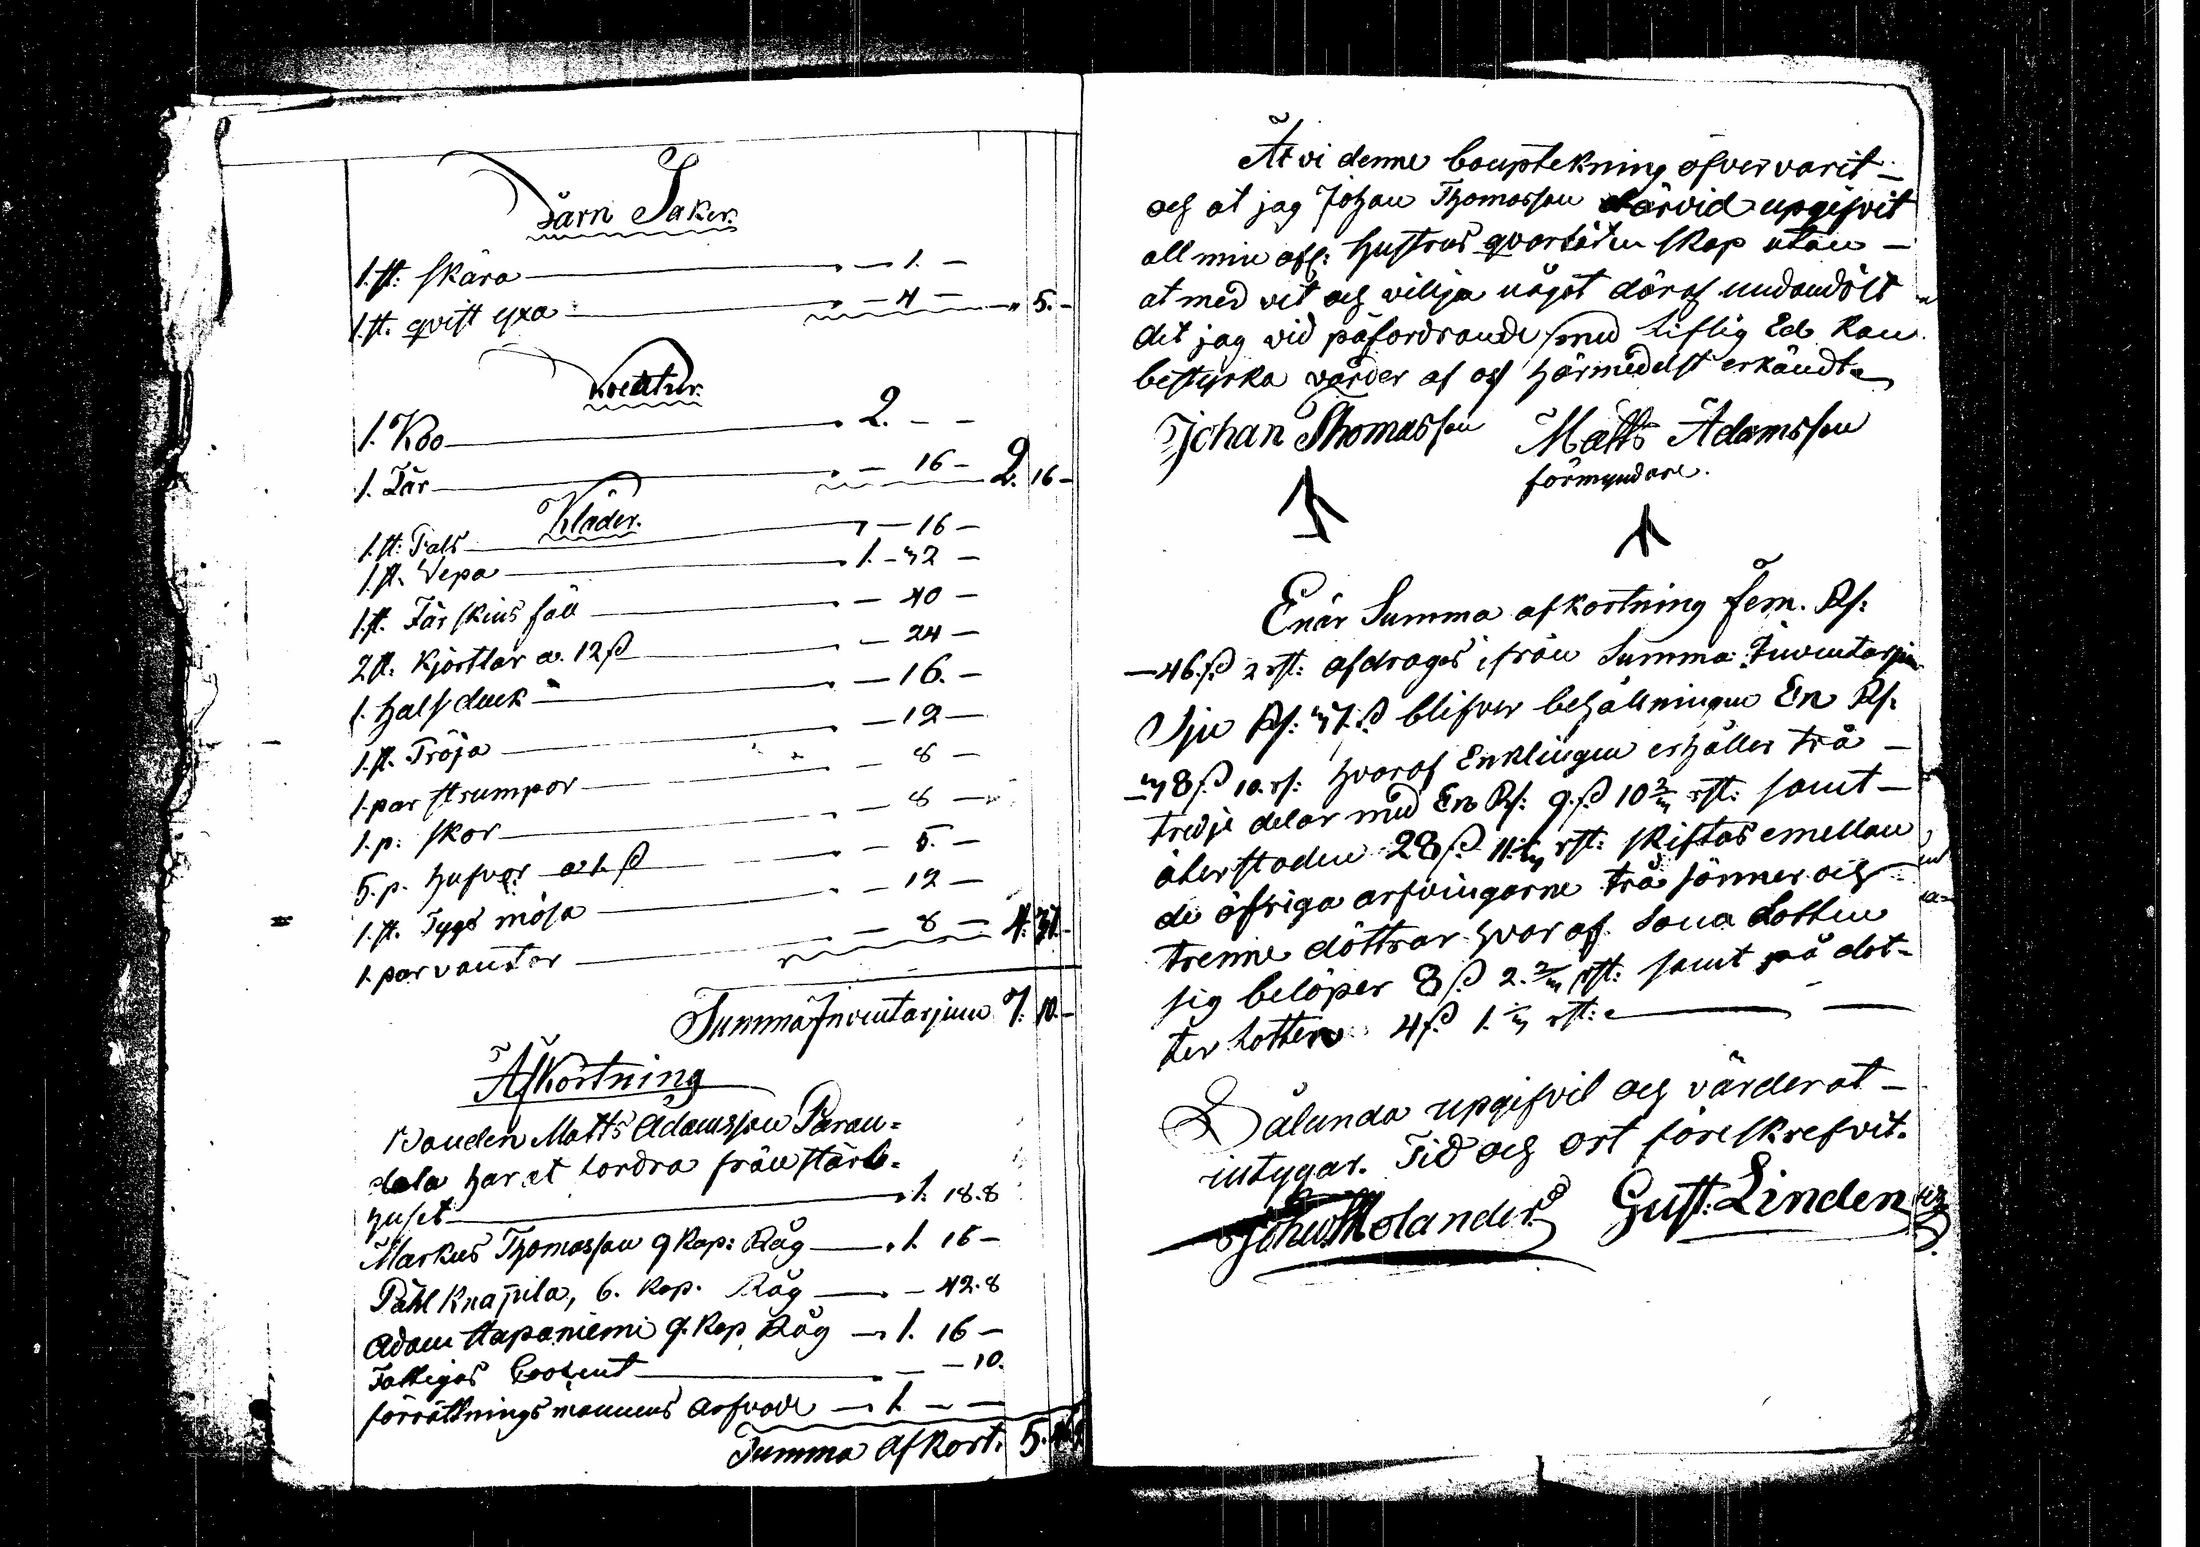 Järn Saker.
1. st: skära — 1. —
1. st. qvist yxa — 4 — 5. —
Kreatur.
1. Koo — 2. — —
1. Får — 16 — 2. 16 —
Kläder.
1. st: Pals — 16 —
1. st. Vepa — 1. — 32 —
1. st. Får skins fäll — 40 —
2 st. Kjortlar a. 12 ß — 24 —
1. Halsduck — 16. —
1. st. Tröja — 12 —
1. par strumpor — 8 —
1. p: skor — 8 —
5. p. hufvor a 1. ß — 5. —
1. st. Tygs mösa — 12 —
1. par vantar — 8 — 4. 37. —
Summa Inventarium 7. 10. —
Afkortning
Bonden Matts Adamsson Paran=
dala har at fordra från stärb=
huset — 1. 18. 8
Markus Thomasson 9 Kap: Råg — 1. 16 —
Påhl Knapila, 6. Kap. Råg — 42. 8
Adam Haponiemi 9. Kap Råg — 1. 16 —
Fattigas Procent — 10.
förrättnings mannens arfvode — 1. — —
Summa Afkort. 5.
At vi denne bouptekning öfvervarit —
och at jag Johan Thomasson därvid upgifvit
all min afl: hustrus qvarlåtenskap utan —
at med vet och vilja något däraf undandölt
det jag vid påfordrande med liflig Ed kan
bestyrka varder af oss härmedelst erkändt.
Johan Thomasson Matts Adamsson
förmyndare.
Enär Summa afkortning fem. Rs:
— 46. ß 2 rst: afdrages ifrån Summa Inventarium
Sju Rs: ß blifver behållningen En Rs:
— 38 ß 10. rs: hvaraf Enklingen erhåller två —
tredje delar med En Rs: 9. ß 10 2/3 rst: samt —
återstoden 28 ß 11. 1/3 rst: skiftas emellan
de öfriga arfvingarne två söner och
trenne döttrar hvaraf Sona Lotten
sig belöper 8 ß 2. 2/3 rst: samt på dot=
ter lotten 4 ß 1. 1/3 rst: —
Sålunda upgifvit och värderat —
intygar. Tid och ort föreskrefvit.
Johan Molander Gust: Linden